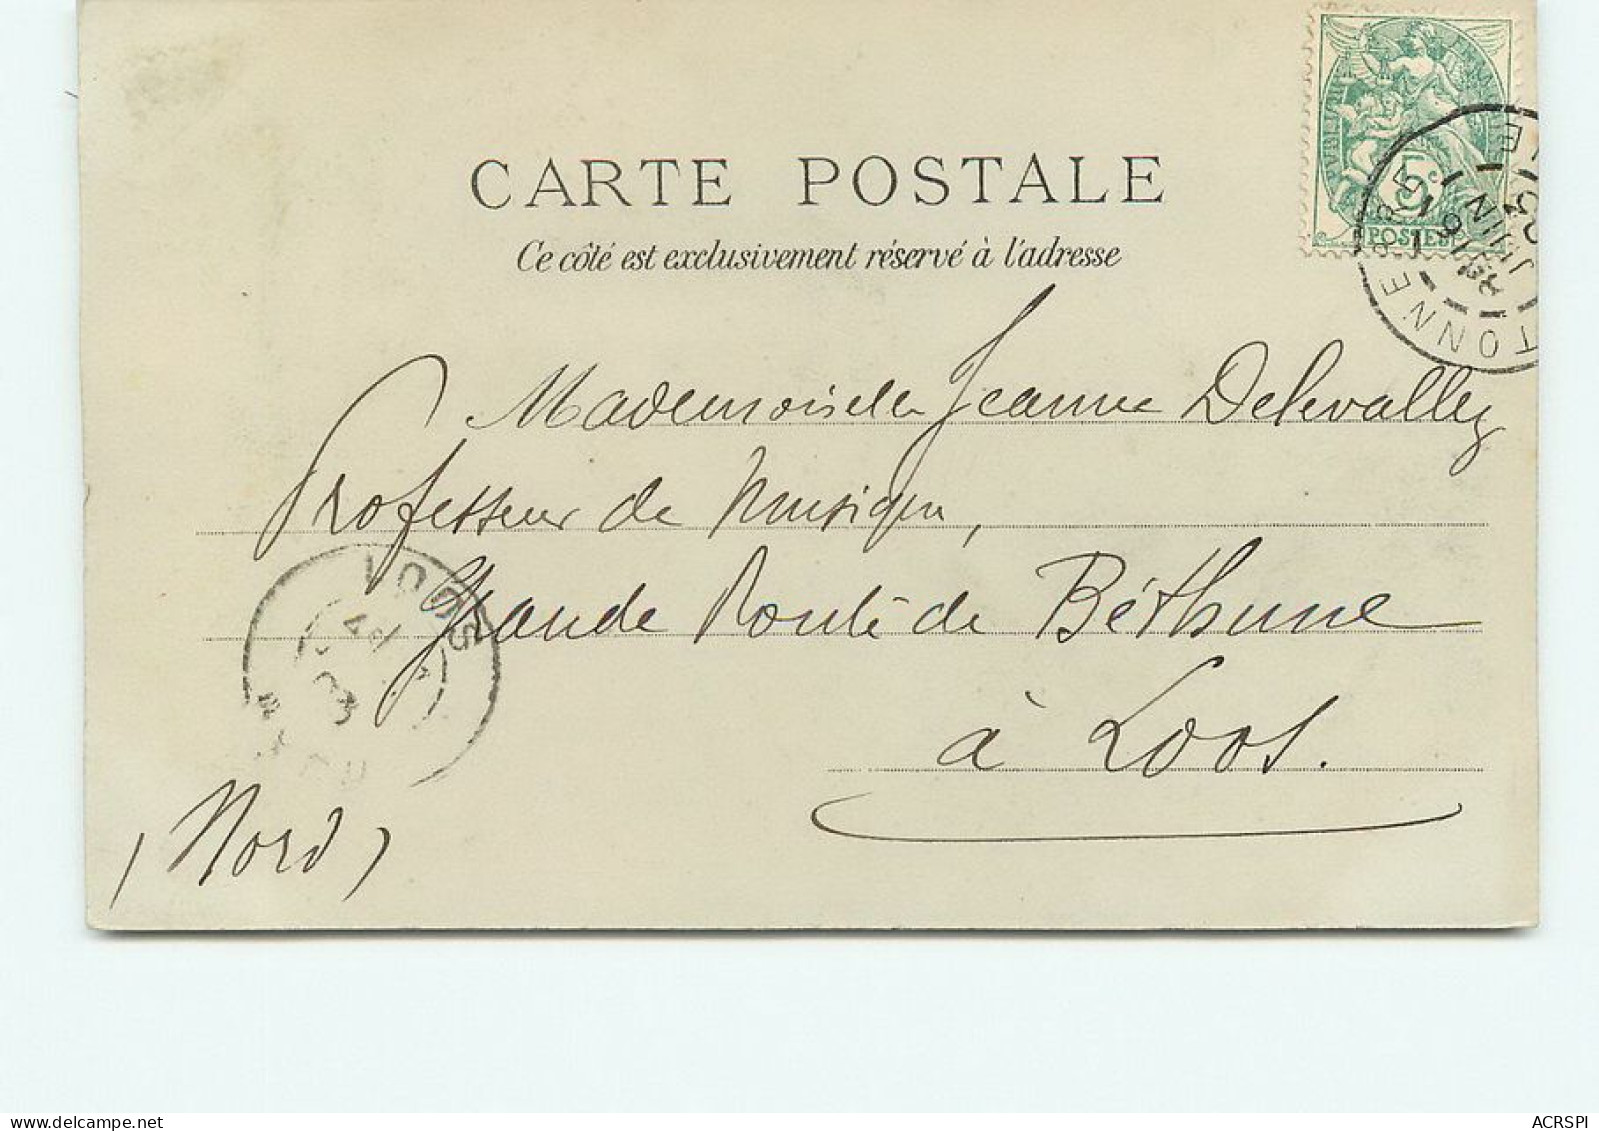 CARTE POSTALE
Ce côté est exclusivement réservé à l'adresse
5c
POSTES
TONNERRE
JUIN
Mademoiselle Jeanne Delevalley
Professeur de Musique,
Grande Route de Béthune
à Loos.
(Nord)
LOOS
NORD
ACRSPI